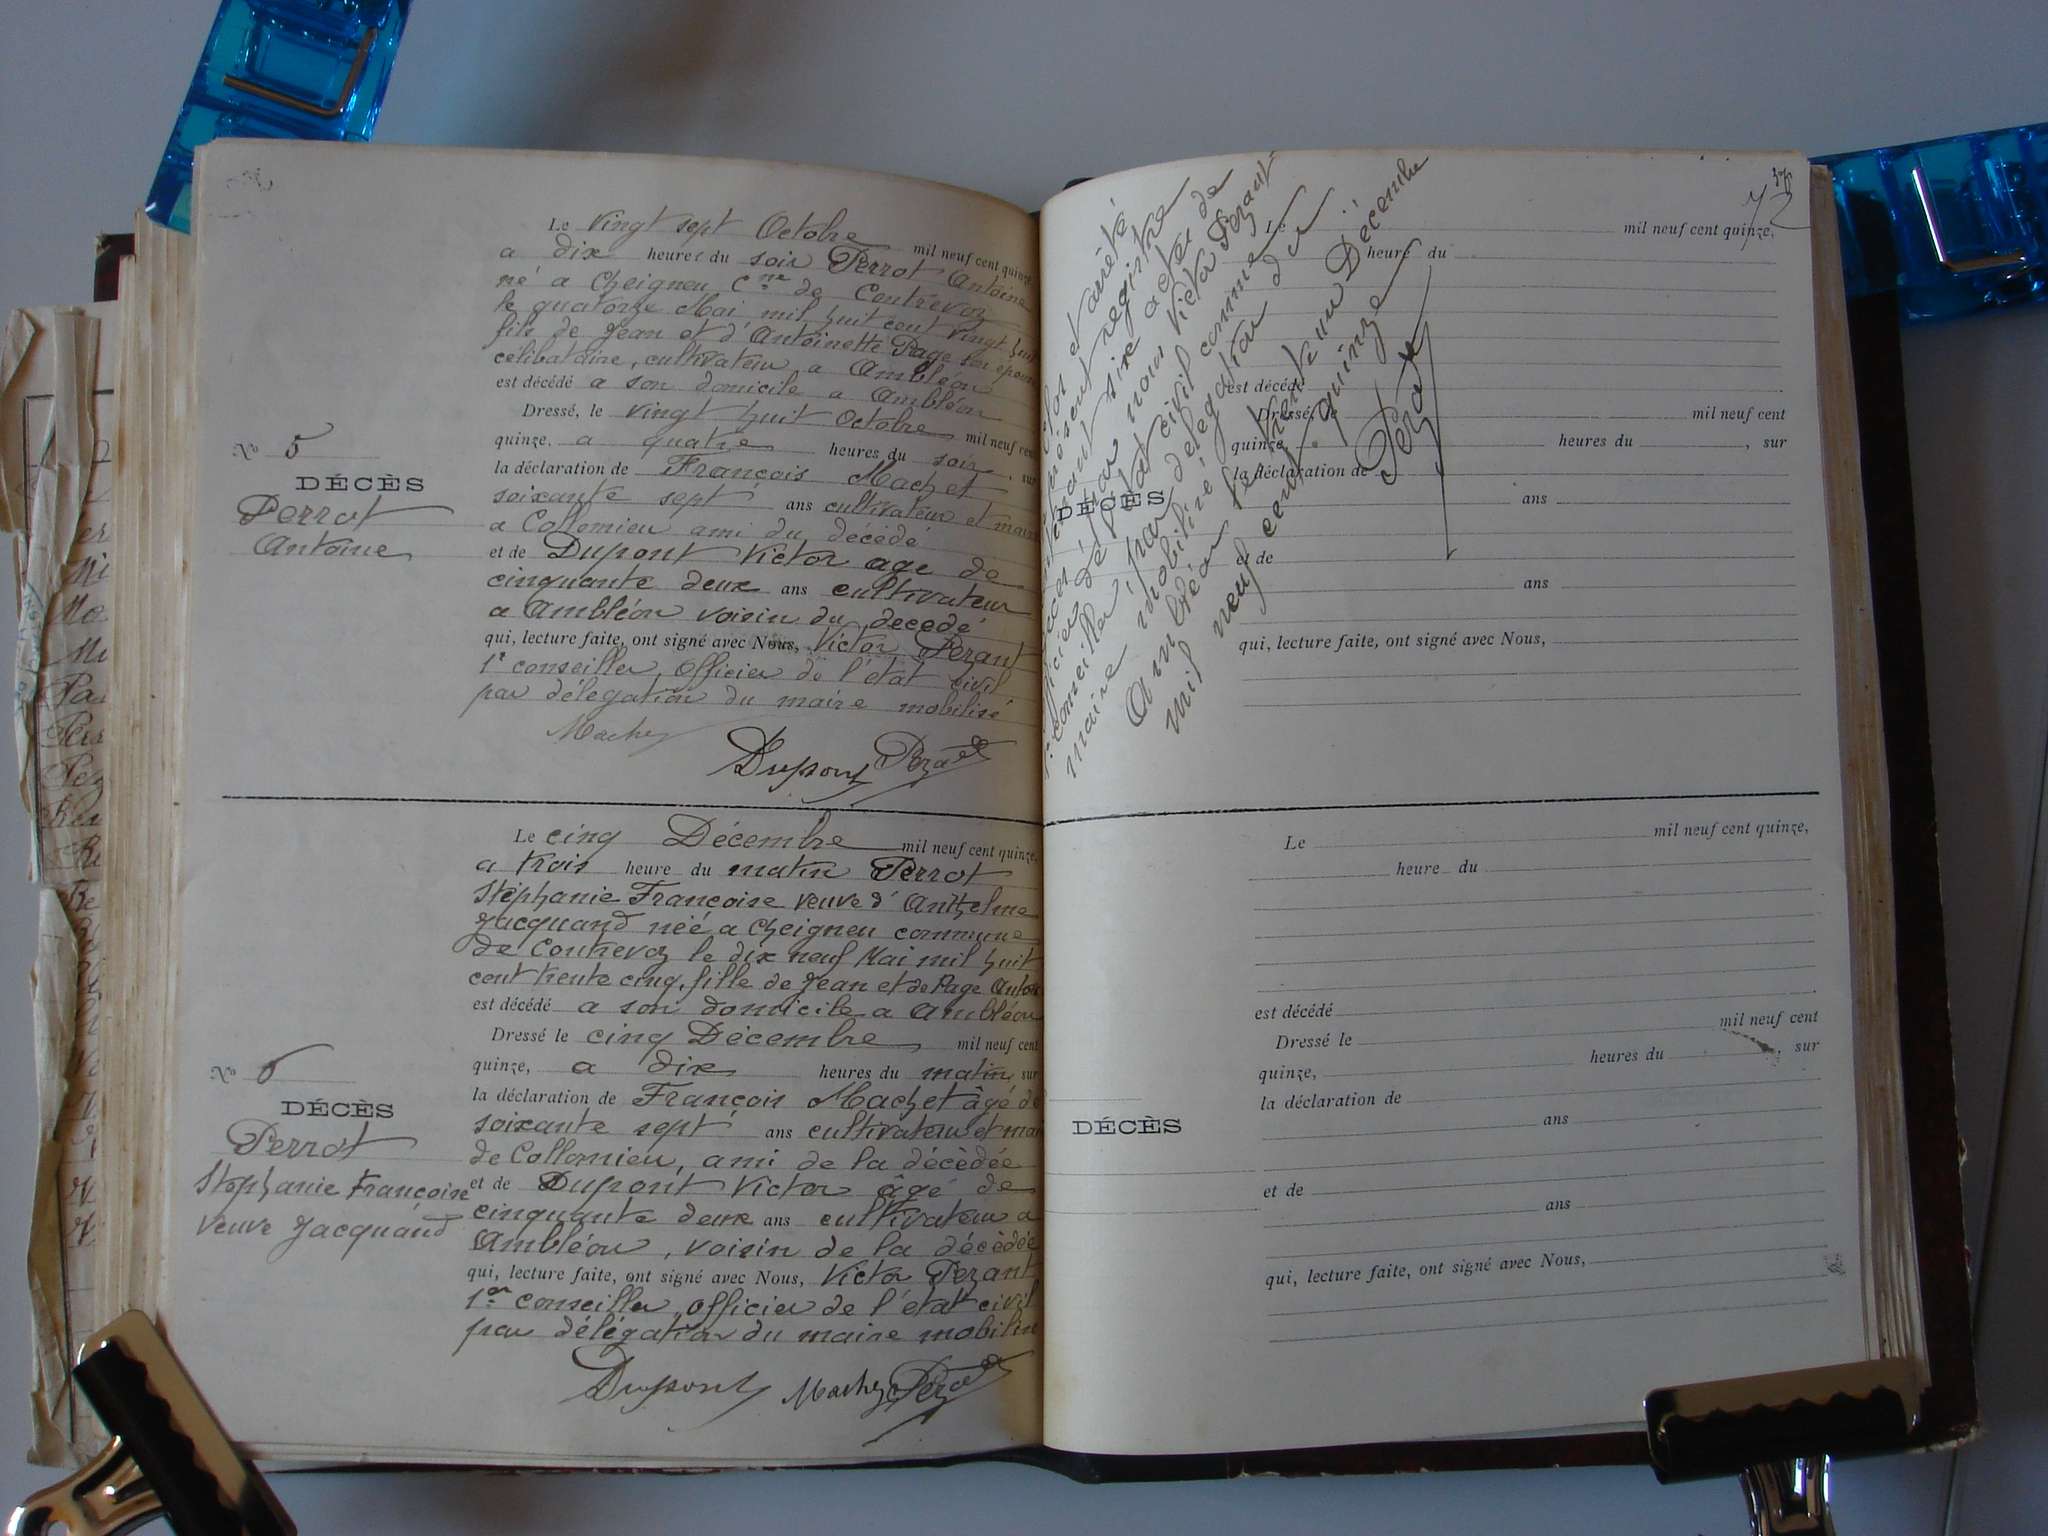 Le vingt sept Octobre mil neuf cent quinze
a dix heures du soir Perrot Antoine
né a Cheigneu Cne de Contrevoz
le quatorze Mai mil huit cent vingt huit
fils de Jean et d'Antoinette Page son épouse
célibataire, cultivateur a Ambléon
est décédé a son domicile a Ambléon
Dressé, le vingt huit Octobre mil neuf cent
quinze, a quatre heures du soir, sur
la déclaration de François Machet
soixante sept ans cultivateur et maire
a Collomieu ami du décédé
et de Dupont Victor age de
cinquante deux ans cultivateur
a Ambléon voisin du decedé
qui, lecture faite, ont signé avec Nous, Victor Pezant
1r conseiller, officier de l'état civil
par délegation du maire mobilisé
Machet
Dupont Pezant
No 5
DÉCÈS
Perrot
Antoine
Le cinq Décembre mil neuf cent quinze,
a trois heure du matin Perrot
Stéphanie Françoise veuve d'Anthelme
Jacquand néé a Cheigneu commune
de Contrevoz le dix neuf Mai mil huit
cent trente cinq, fille de Jean et de Page Antoi
est décédé a son domicile a Ambléon
Dressé le cinq Décembre mil neuf cent
quinze, a dix heures du matin, sur
la déclaration de François Machet âgé de
soixante sept ans cultivateur et mai
de Collomieu, ami de la décèdée
et de Dupont Victor âgé de
cinquante deux ans cultivateur a
Ambléon, voisin de la décèdée
qui, lecture faite, ont signé avec Nous, Victor Pezant
1er conseiller, officier de l'état civil
par délégation du maire mobilisé
Dupont Machet Pezant
No 6
DÉCÈS
Perrot
Stephanie Françoise
veuve Jacquand
72
Clos et arrêté
présent registre
contenant six actes de
décès par nous Victor Pezant
officier de l'état civil comme
1r conseiller, par délegation du
maire mobilisé
Ambléon le trente un Décembre
mil neuf cent quinze
Pezant
Le mil neuf cent quinze,
heure du
est décédé
Dressé, le mil neuf cent
quinze, heures du , sur
la déclaration de
ans
DÉCÈS
et de
ans
qui, lecture faite, ont signé avec Nous,
Le mil neuf cent quinze,
heure du
est décédé
Dressé le mil neuf cent
quinze, heures du , sur
la déclaration de
ans
DÉCÈS
et de
ans
qui, lecture faite, ont signé avec Nous,